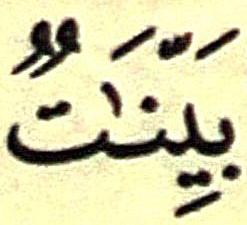 بَيِّنَٰتٌ